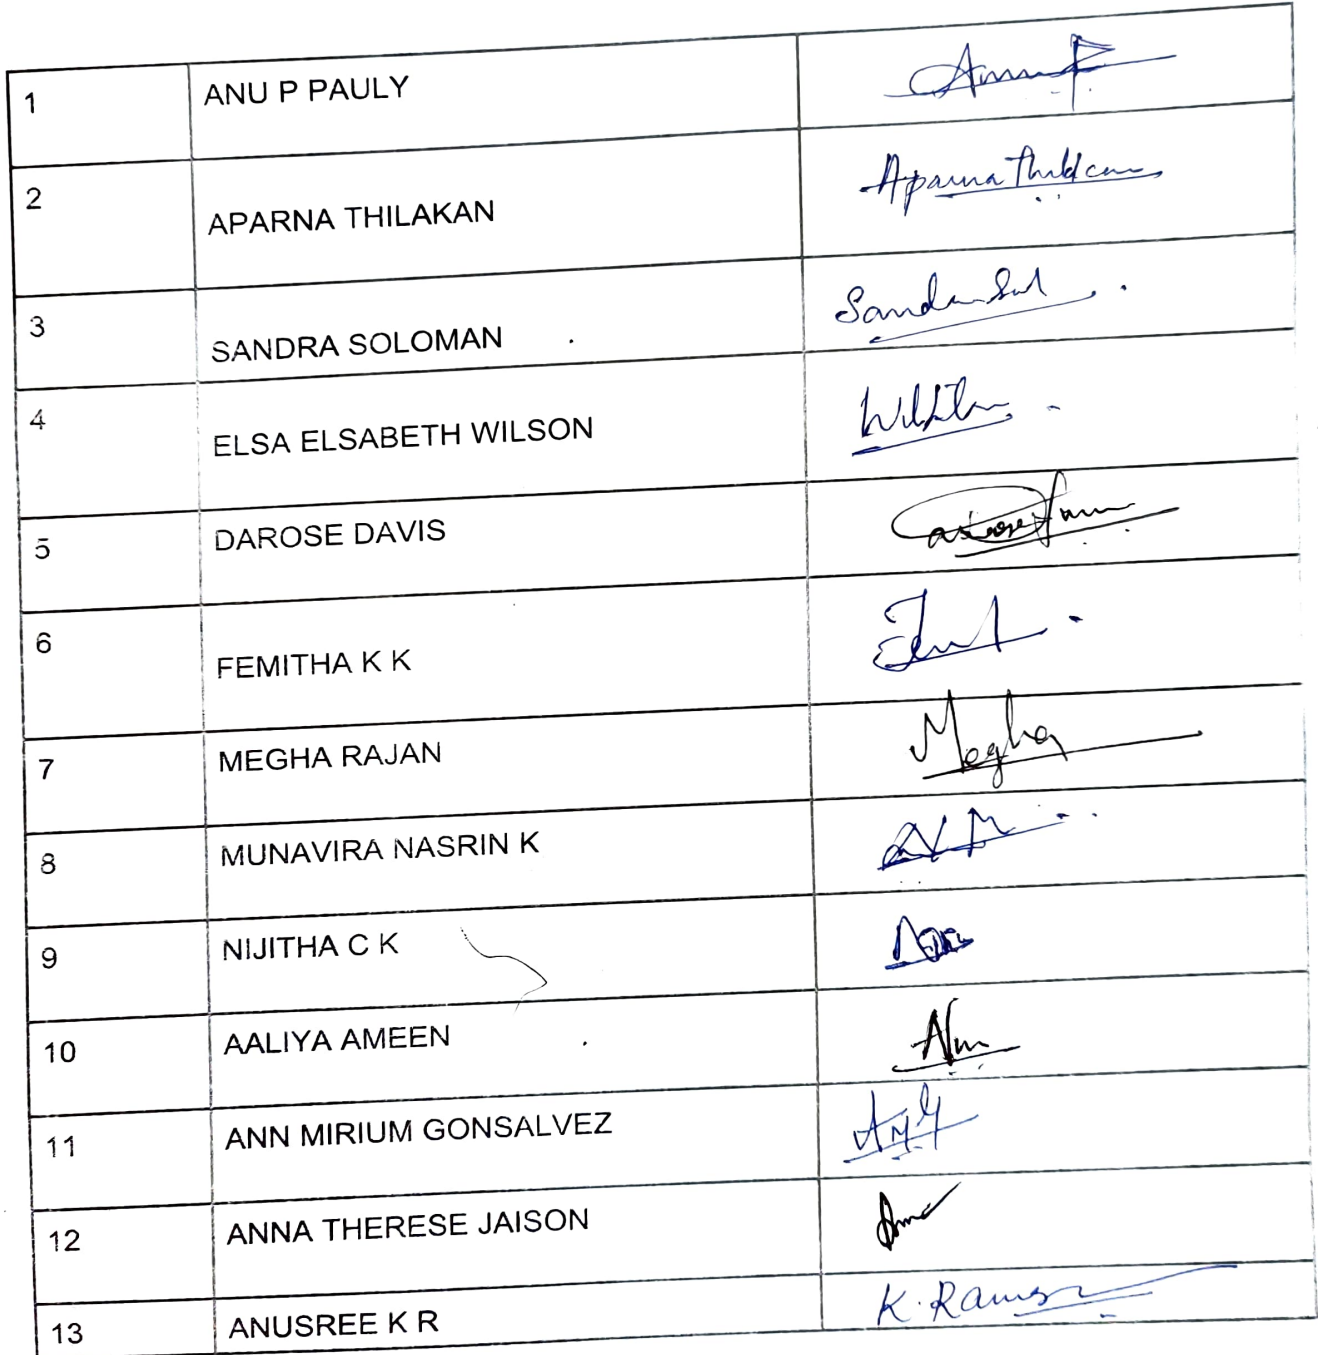 1 ANU P PAULY Anu P
2 APARNA THILAKAN Aparna Thilakan
3 SANDRA SOLOMAN Sandra Sol
4 ELSA ELSABETH WILSON
5 DAROSE DAVIS
6 FEMITHA K K
7 MEGHA RAJAN Megha
8 MUNAVIRA NASRIN K
9 NIJITHA C K
10 AALIYA AMEEN
11 ANN MIRIUM GONSALVEZ AMG
12 ANNA THERESE JAISON
13 ANUSREE K R